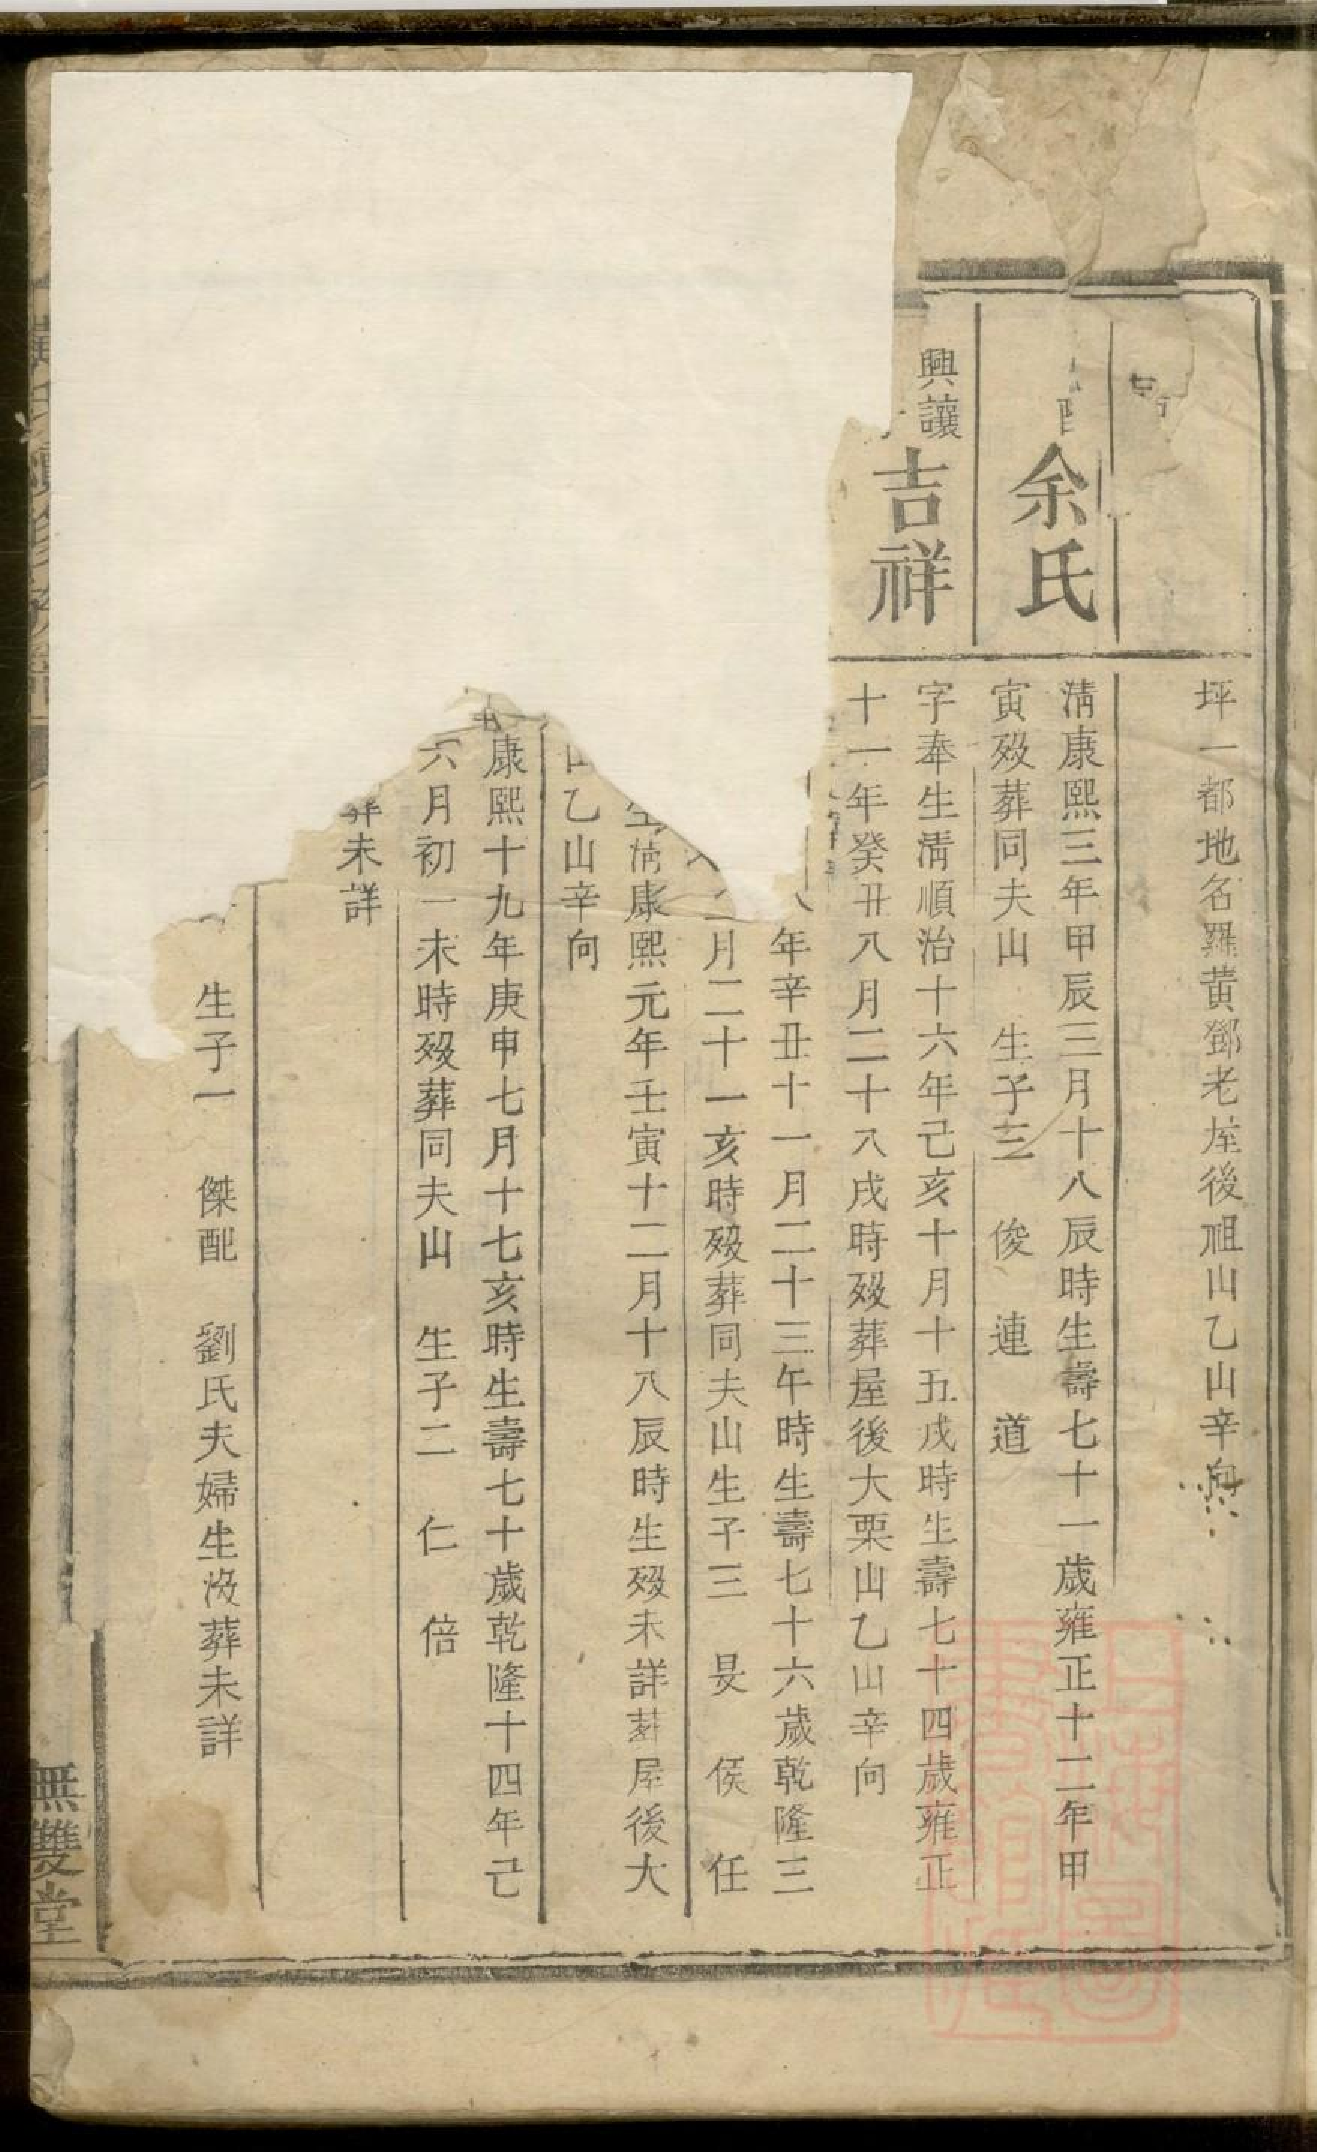 坪一都地名羅黃鄧老屋後祖山乙山辛向
余氏
清康熙三年甲辰三月十八辰時生壽七十一歲雍正十二年甲
寅歿葬同夫山 生子三 俊 連 道
興讓
吉祥
字奉生清順治十六年己亥十月十五戌時生壽七十四歲雍正
十一年癸丑八月二十八戌時歿葬屋後大栗山乙山辛向
年辛丑十一月二十三午時生壽七十六歲乾隆三
月二十一亥時歿葬同夫山生子三 旻 侯 任
清康熙元年壬寅十二月十八辰時生歿未詳葬屋後大
乙山辛向
康熙十九年庚申七月十七亥時生壽七十歲乾隆十四年己
六月初一未時歿葬同夫山 生子二 仁 倍
未詳
生子一 傑配 劉氏夫婦生歿葬未詳
無雙堂